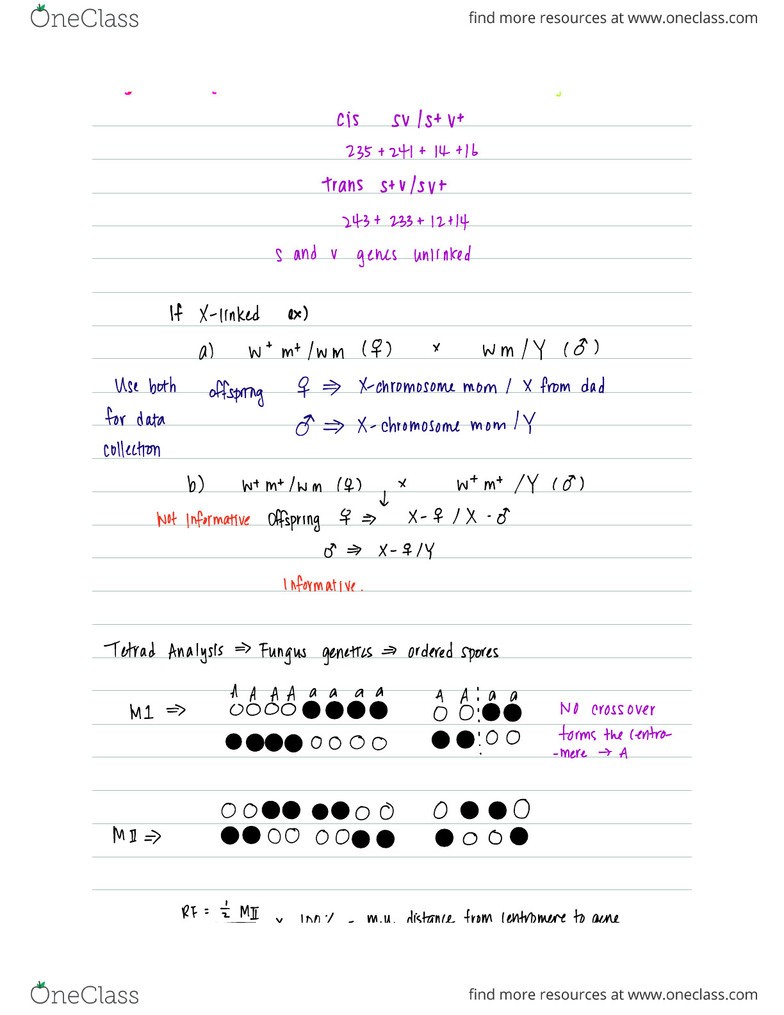 OneClass
find more resources at www.oneclass.com
cis sv/s+ v+
235 + 241 + 14 + 16
trans s+v/sv+
243 + 233 + 12 + 14
s and v genes unlinked
If X-linked ex)
a) w+ m+/wm (♀) × wm/Y (♂)
Use both offspring ♀ ⇒ X-chromosome mom / X from dad
for data ♂ ⇒ X-chromosome mom/Y
collection
b) w+ m+/wm (♀) × w+ m+ /Y (♂)
↓
Not Informative Offspring ♀ ⇒ X-♀ / X-♂
♂ ⇒ X-♀/Y
Informative.
Tetrad Analysis ⇒ Fungus genetics ⇒ ordered spores
A A A A a a a a A A a a
MI ⇒ No crossover
forms the centro
-mere → A
MII ⇒
RF = 1/2 MII × 100% = m.u. distance from centromere to gene
OneClass
find more resources at www.oneclass.com